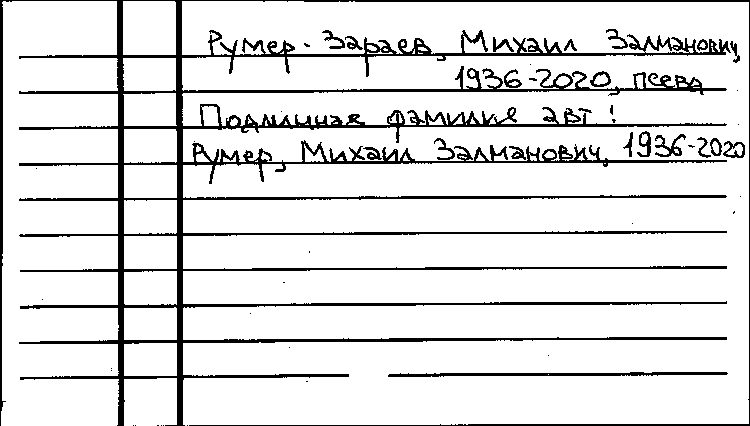 Румер-Зараев, Михаил Залманович,
1936-2020, псевд
Подлинная фамилия авт!
Румер, Михаил Залманович, 1936-2020